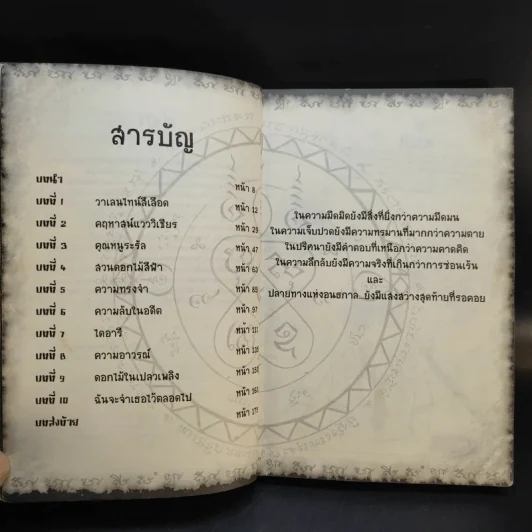 สารบัญ
บทนำ หน้า 8
บทที่ 1 วาเลนไทน์สีเลือด หน้า 12
บทที่ 2 คฤหาสน์แวววิเชียร หน้า 29
บทที่ 3 คุณหนูระรัล หน้า 47
บทที่ 4 สวนดอกไม้สีฟ้า หน้า 63
บทที่ 5 ความทรงจำ หน้า 85
บทที่ 6 ความลับในอดีต หน้า 97
บทที่ 7 ไดอารี่ หน้า
บทที่ 8 ความอาวรณ์ หน้า
บทที่ 9 ดอกไม้ในเปลวเพลิง หน้า
บทที่ 10 ฉันจะจำเธอไว้ตลอดไป หน้า
บทส่งท้าย หน้า
ในความมืดมิดยังมีสิ่งที่ยิ่งกว่าความมืดมน
ในความเจ็บปวดยังมีความทรมานที่มากกว่าความตาย
ในปริศนายังมีคำตอบที่เหนือกว่าความคาดคิด
ในความลึกลับยังมีความจริงที่เกินกว่าการซ่อนเร้น
และ
ปลายทางแห่งอนธกาล...ยังมีแสงสว่างสุดท้ายที่รอคอย